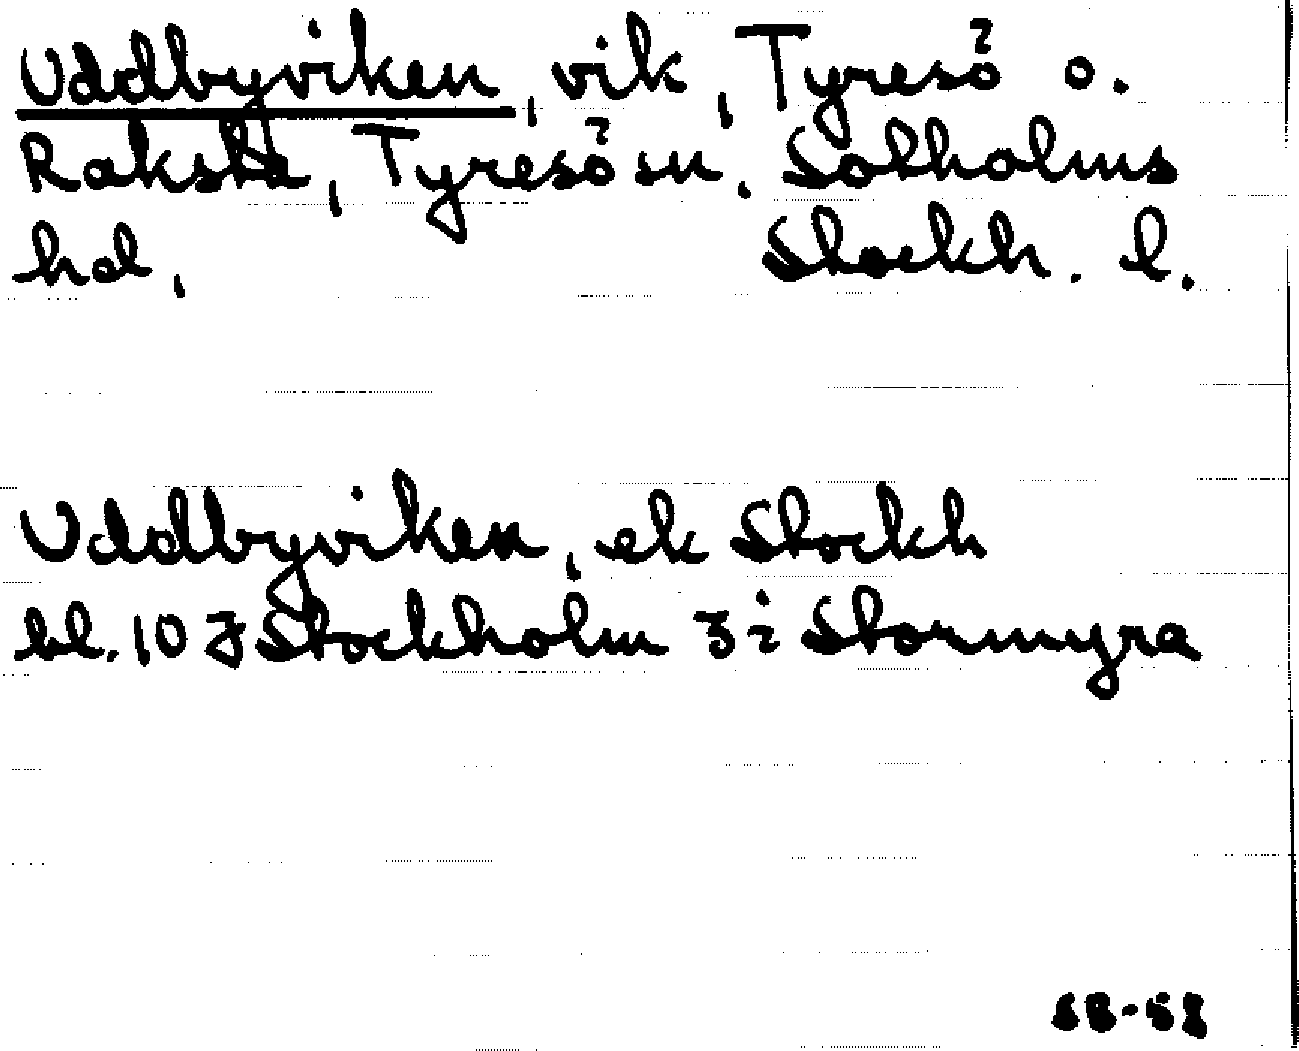 Uddbyviken, vik, Tyresö o.
Raksta, Tyresö sn. Sotholms
hd, Stockh. l.
Uddbyviken, ek Stockh
bl. 10 J Stockholm 3 i Stormyra